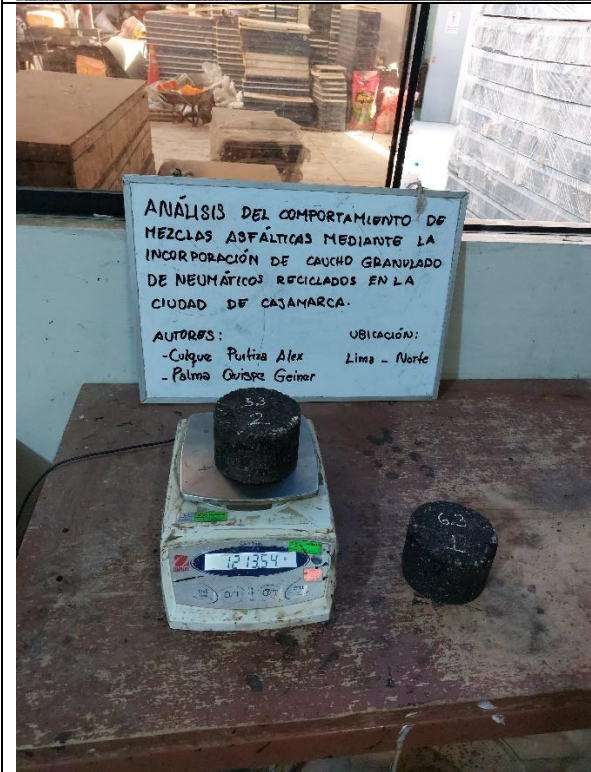 ANÁLISIS DEL COMPORTAMIENTO DE
MEZCLAS ASFÁLTICAS MEDIANTE LA
INCORPORACIÓN DE CAUCHO GRANULADO
DE NEUMÁTICOS RECICLADOS EN LA
CIUDAD DE CAJAMARCA.
AUTORES:
-Culque Puitiza Alex
- Palma Quispe Geiner
UBICACIÓN:
Lima - Norte
5.3
2
6.2
1
1213.54
OHAUS